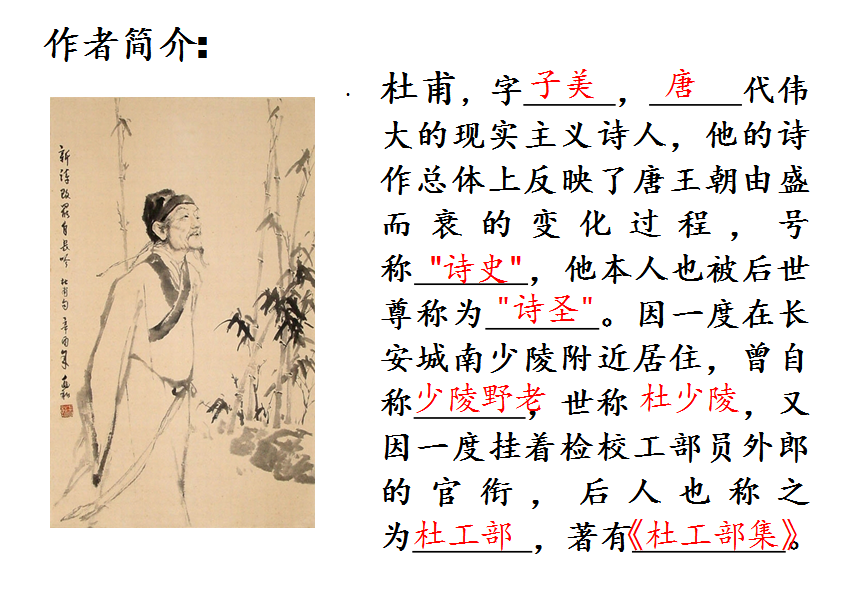 作者简介:
杜甫，字子美，唐代伟
大的现实主义诗人，他的诗
作总体上反映了唐王朝由盛
而衰的变化过程，号
称"诗史"，他本人也被后世
尊称为"诗圣"。因一度在长
安城南少陵附近居住，曾自
称少陵野老，世称杜少陵，又
因一度挂着检校工部员外郎
的官衔，后人也称之
为杜工部，著有《杜工部集》。
新诗改罢自长吟